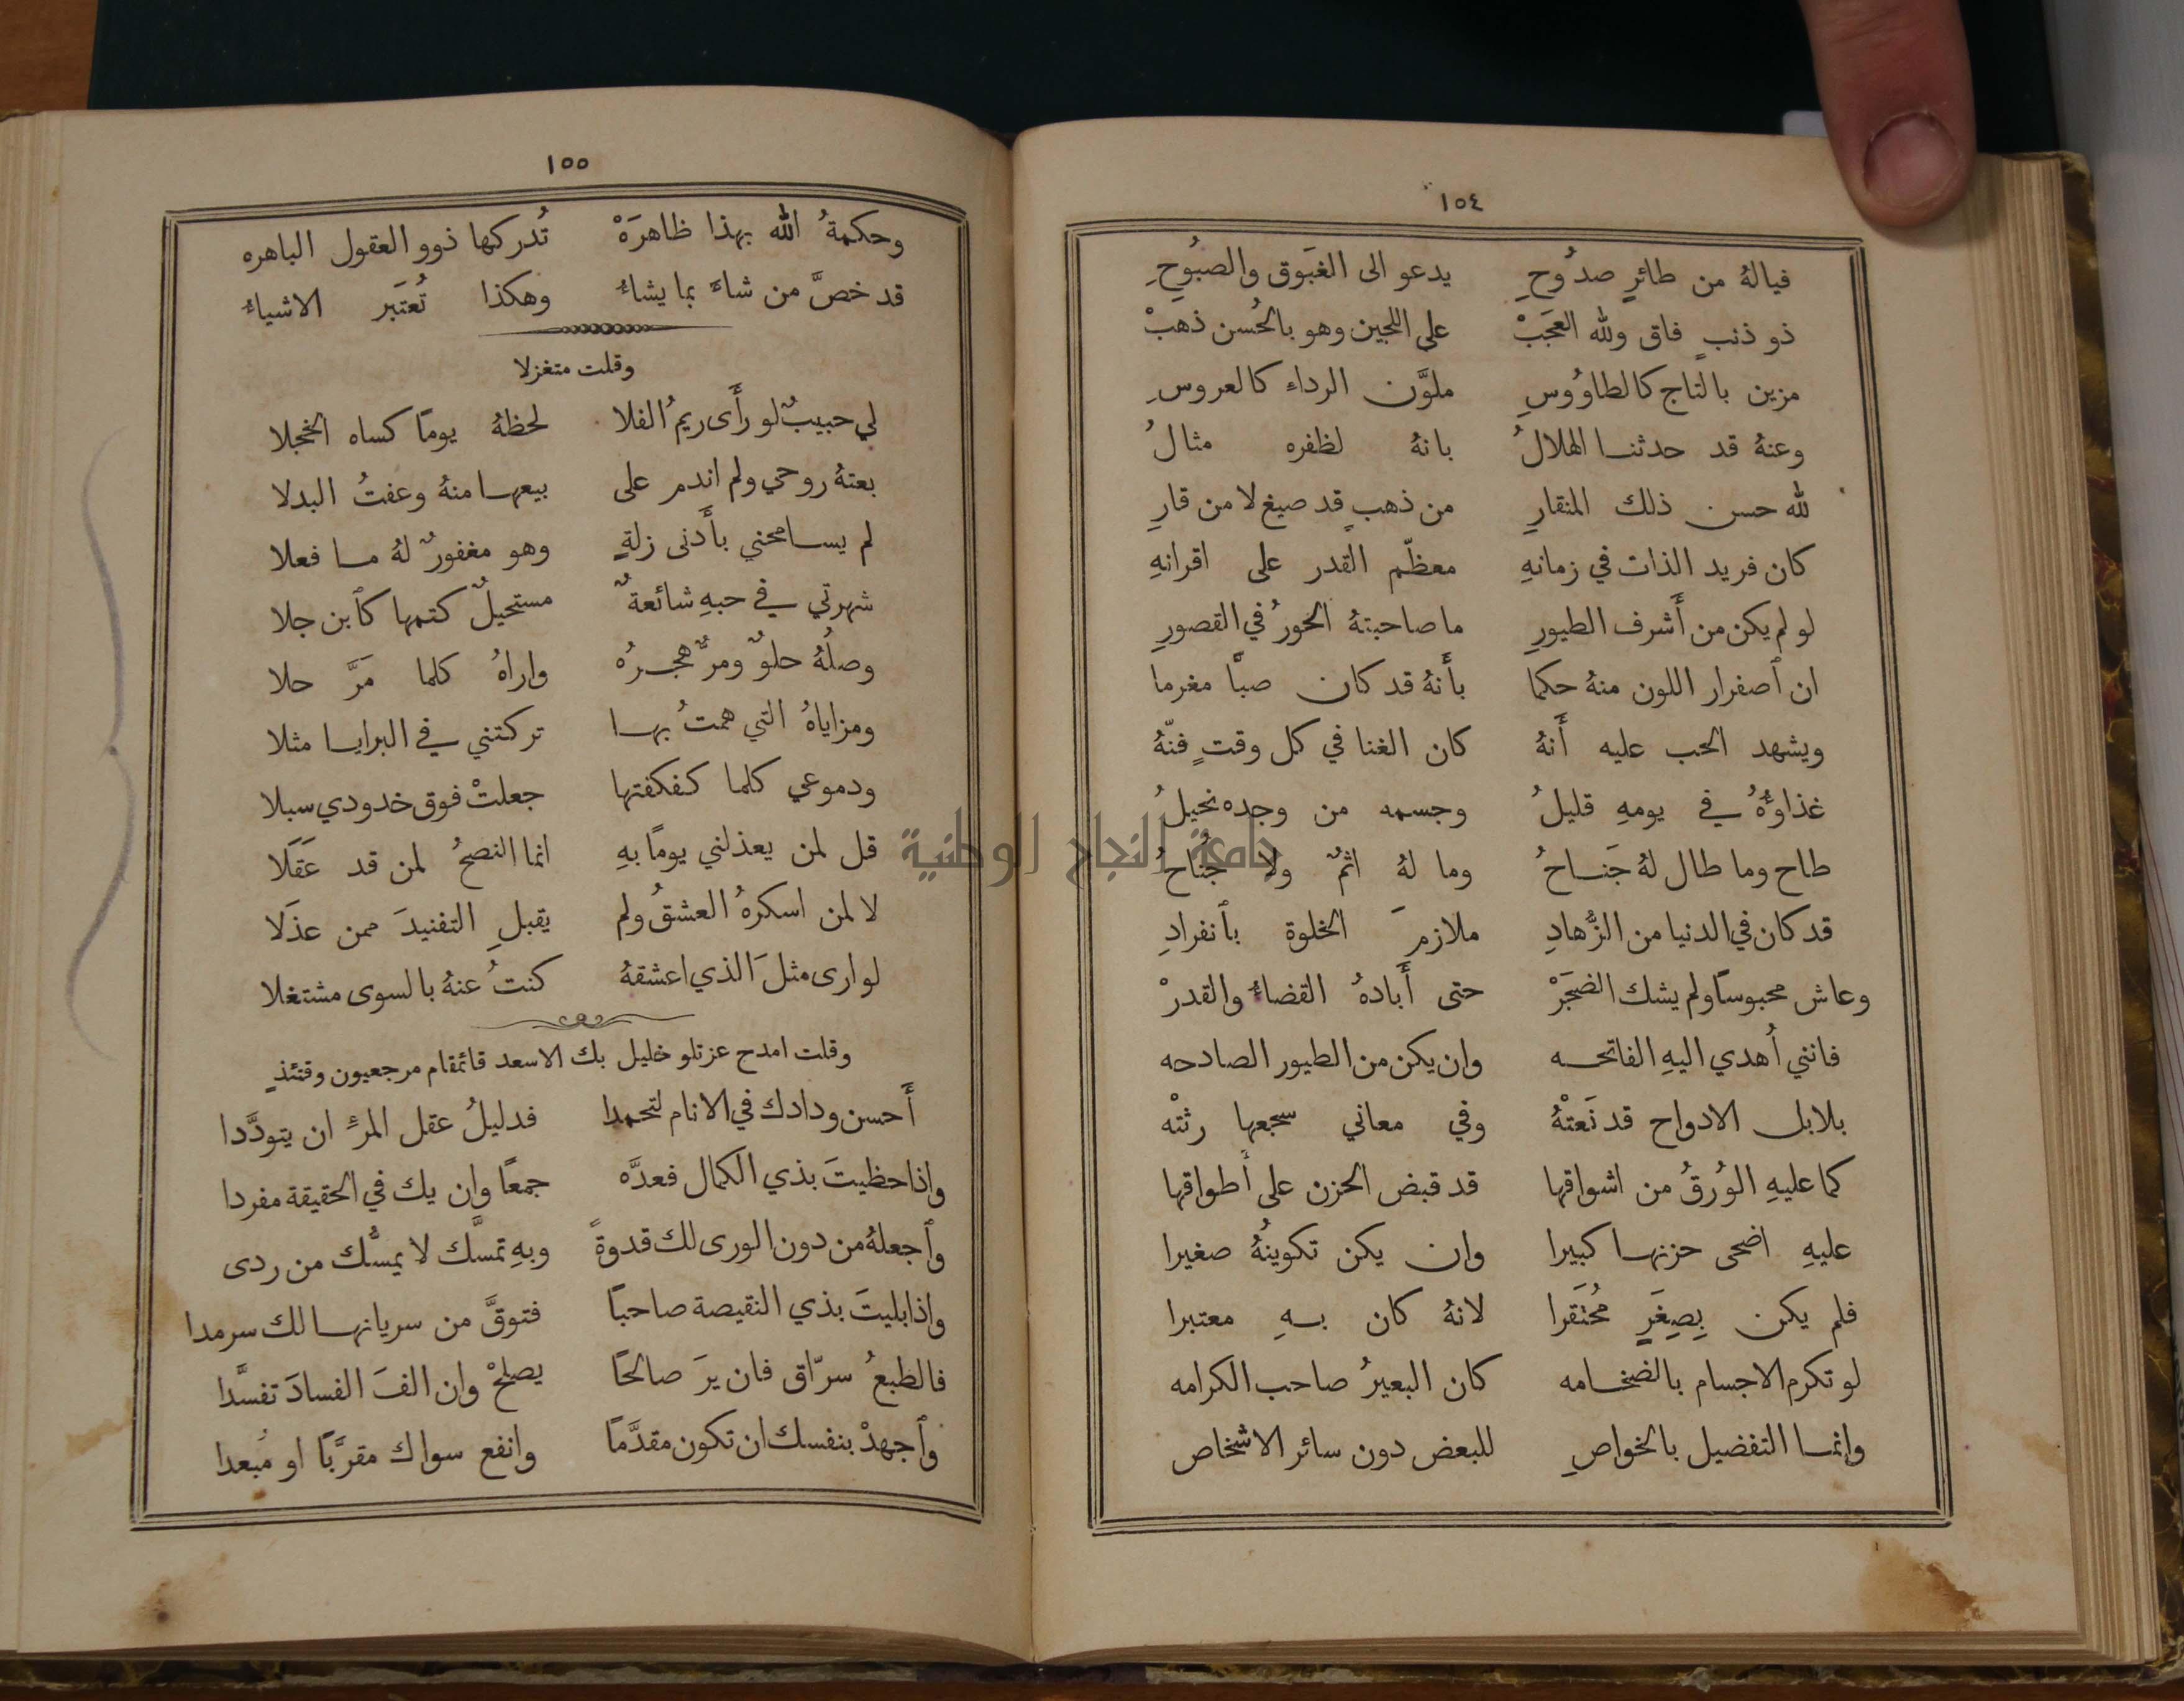 ١٥٤
فيالهُ من طائرٍ صدُوحِ يدعو الى الغبَوق والصبُوحِ
ذو ذنبٍ فاق ولله العجَبْ على اللجين وهو بالحُسن ذهبْ
مزين بالتاج كالطاوُوسِ ملوَّن الرداء كالعروسِ
وعنهُ قد حدثنا الهلالُ بانهُ لظفره مثالُ
لله حسن ذلك المنقارِ من ذهبٍ قد صيغ لا من قارِ
كان فريد الذات في زمانهِ معظّم القدر على اقرانهِ
لو لم يكن من أَشرف الطيورِ ما صاحبتهُ الحورُ في القصورِ
ان ٱصفرار اللون منهُ حكما بأَنهُ قد كان صبًّا مغرما
ويشهد الحب عليه أَنهُ كان الغنا في كل وقتٍ فنّهُ
غذاوُهُ في يومهِ قليلُ وجسمه من وجده نحيلُ
طاح وما طال لهُ جَناحُ وما لهُ اثمٌ ولا جُناحُ
قد كان في الدنيا من الزُّهادِ ملازمَ الخلوة بٱنفرادِ
وعاش محبوسًا ولم يشك الضجَرْ حتى أَبادهُ القضاءُ والقدرْ
فانني أُهدي اليهِ الفاتحه وان يكن من الطيور الصادحه
بلابل الادواح قد نَعتْهُ وفي معاني سجعها رثتْه
كما عليهِ الوُرقُ من اشواقها قد قبض الحزن على أَطواقها
عليهِ اضحى حزنها كبيرا وان يكن تكوينهُ صغيرا
فلم يكن بِصِغَرٍ مُحتَقرا لانهُ كان بهِ معتبرا
لو تكرم الاجسام بالضخامه كان البعيرُ صاحب الكرامه
وانما التفضيل بالخواصِ للبعض دون سائر الاشخاص
١٥٥
وحكمةُ الله بهذا ظاهرَهْ تُدركها ذوو العقول الباهره
قد خصَّ من شاءَ بما يشاءُ وهكذا تُعتَبر الاشياءُ
وقلت متغزلا
لي حبيبٌ لو رأَى ريمُ الفلا لحظهُ يومًا كساه الخجلا
بعتهُ روحي ولم اندم على بيعها منهُ وعفتُ البدلا
لم يسامحني بأَدنى زلةٍ وهو مغفورٌ لهُ ما فعلا
شهرتي في حبهِ شائعةٌ مستحيلٌ كتمها كٱبن جلا
وصلُهُ حلوٌ ومرٌّ هجرُه واراهُ كلما مَرَّ حلا
ومزاياهُ التي همتُ بها تركتني في البرايا مثلا
ودموعي كلما كفكفتها جعلتْ فوق خدودي سبلا
قل لمن يعذلني يومًا بهِ انما النصحُ لمن قد عَقَلا
لا لمن اسكرهُ العشقُ ولم يقبلِ التفنيدَ ممن عذَلا
لو ارى مثلَ الذي اعشقهُ كنتُ عنهُ بالسوى مشتغلا
وقلت امدح عزتلو خليل بك الاسعد قائمقام مرجعيون وقتئذٍ
أَحسن ودادك في الانام لتحمدا فدليلُ عقل المرءِ ان يتودَّدا
واذا حظيتَ بذي الكمال فعدَّه جمعًا وان يك في الحقيقة مفردا
وٱجعلهُ من دون الورى لك قدوةً وبهِ تمسَّك لا يمسُّك من ردى
واذا بليتَ بذي النقيصة صاحبًا فتوقَّ من سريانها لك سرمدا
فالطبعُ سرّاق فان يرَ صالحًا يصلحْ وان الفَ الفسادَ تفسَّدا
وٱجهدْ بنفسك ان تكون مقدَّمًا وانفع سواك مقرَّبًا او مُبعدا
جامعة النجاح الوطنية